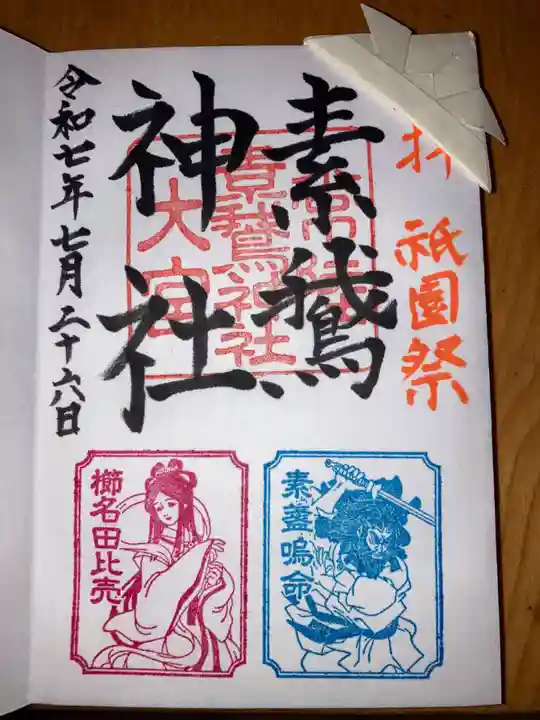 拝 祇園祭
素鵞
神社
常陸
素鵞神社
大宮
令和七年七月二十六日
素盞嗚命
櫛名田比売